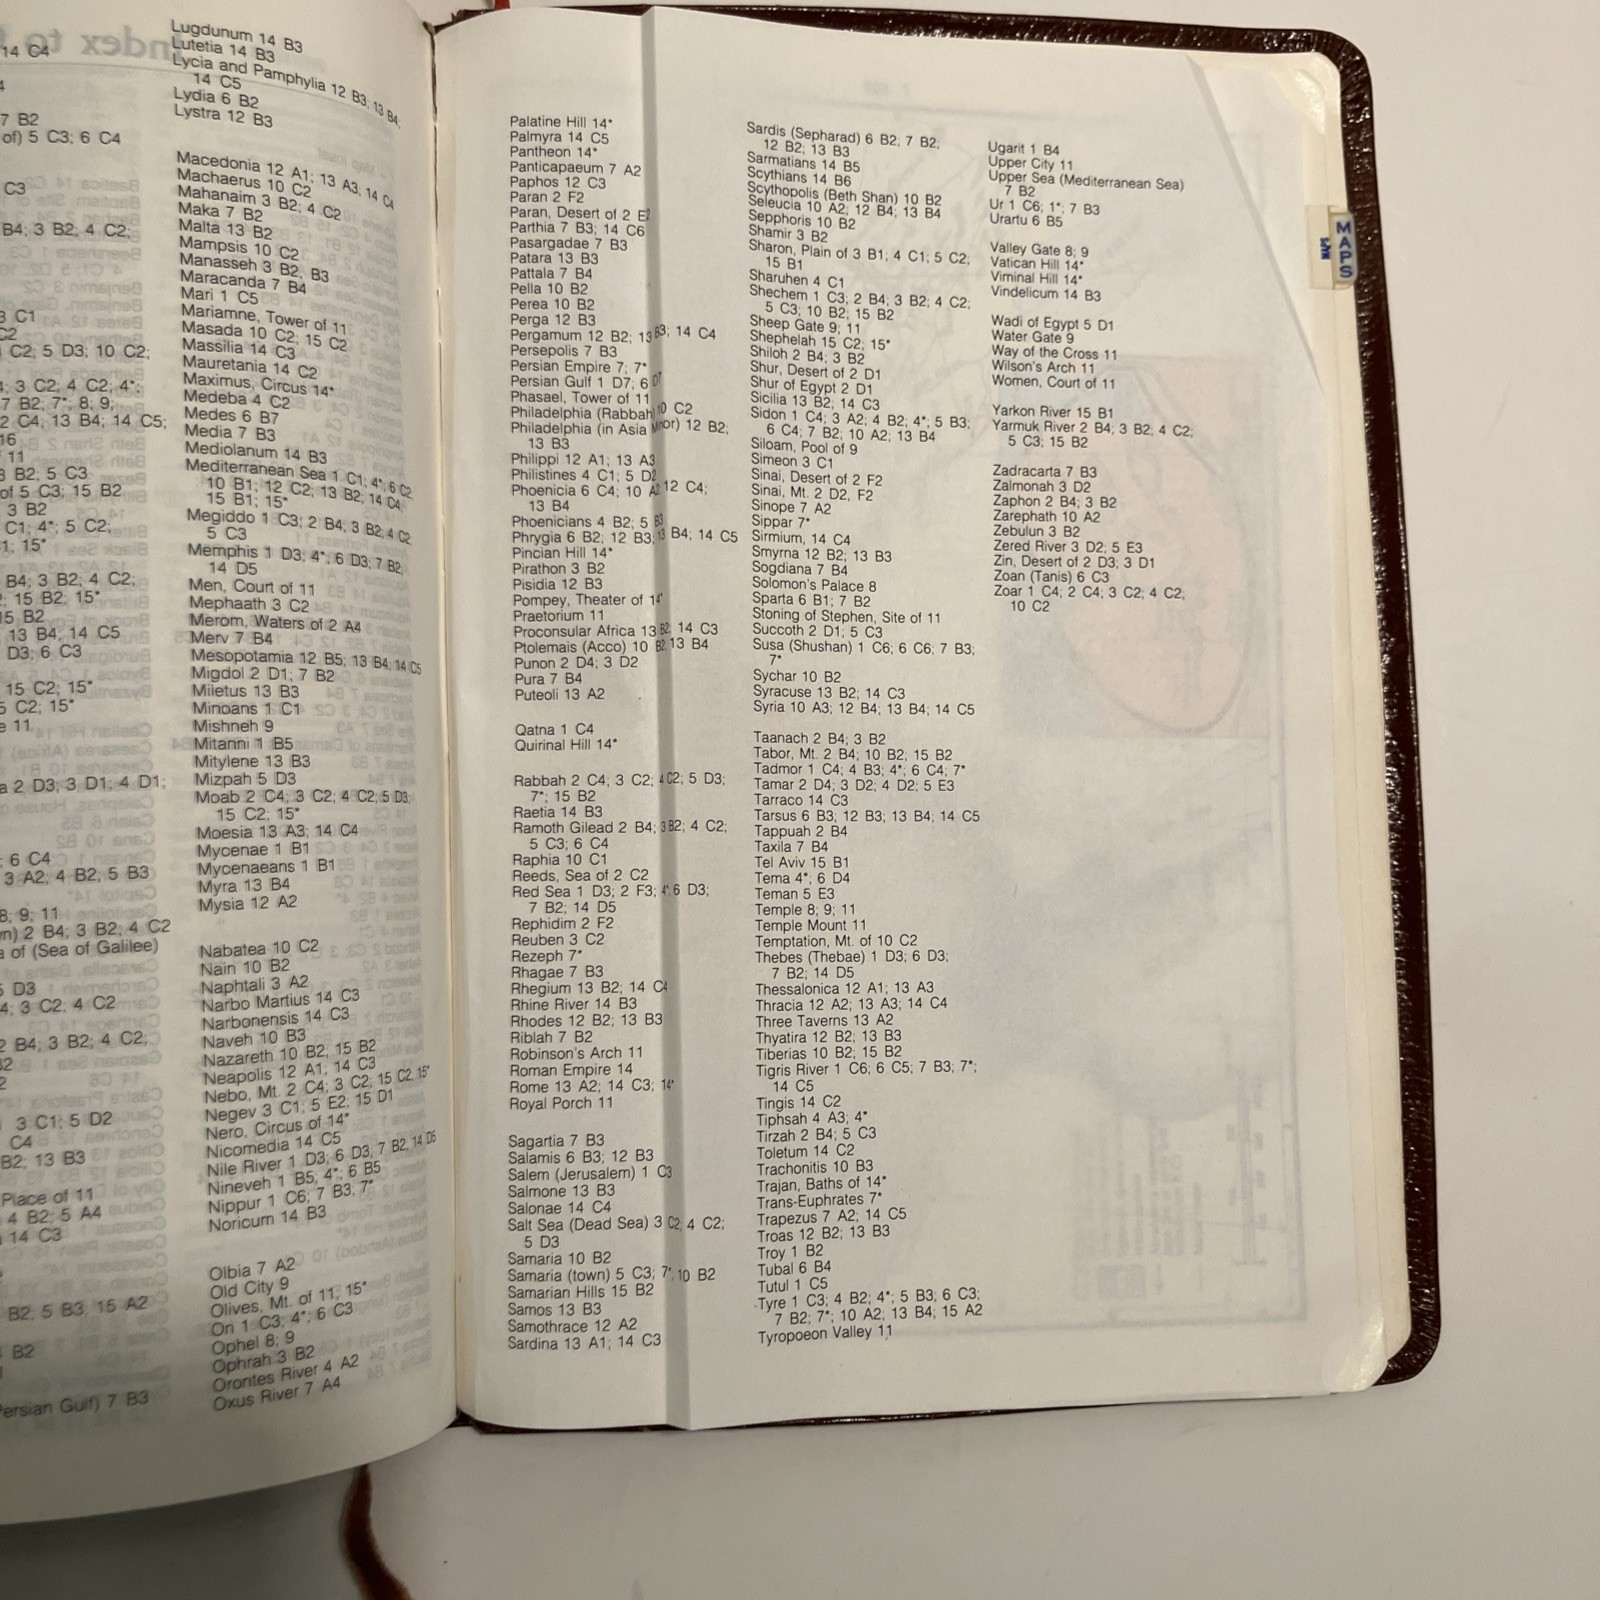 14 C4
7 B2
of) 5 C3; 6 C4
C3
B4; 3 B2; 4 C2;
C1
C2; 5 D3; 10 C2;
3 C2; 4 C2; 4*;
7 B2; 7*; 8; 9;
2 C4; 13 B4; 14 C5;
16
11
B2; 5 C3
of 5 C3; 15 B2
3 B2
C1; 4*; 5 C2;
15*
B4; 3 B2; 4 C2;
15 B2; 15*
15 B2
13 B4; 14 C5
D3; 6 C3
15 C2; 15*
C2; 15*
11
2 D3; 3 D1; 4 D1;
6 C4
3 A2; 4 B2; 5 B3
8; 9; 11
2 B4; 3 B2; 4 C2
of (Sea of Galilee)
D3
3 C2; 4 C2
B4; 3 B2; 4 C2;
3 C1; 5 D2
C4
B2; 13 B3
Place of 11
4 B2; 5 A4
14 C3
B2; 5 B3; 15 A2
B2
Persian Gulf) 7 B3
Lugdunum 14 B3
Lutetia 14 B3
Lycia and Pamphylia 12 B3; 13 B4;
14 C5
Lydia 6 B2
Lystra 12 B3
Macedonia 12 A1; 13 A3; 14 C4
Machaerus 10 C2
Mahanaim 3 B2; 4 C2
Maka 7 B2
Malta 13 B2
Mampsis 10 C2
Manasseh 3 B2, B3
Maracanda 7 B4
Mari 1 C5
Mariamne, Tower of 11
Masada 10 C2; 15 C2
Massilia 14 C3
Mauretania 14 C2
Maximus, Circus 14*
Medeba 4 C2
Medes 6 B7
Media 7 B3
Mediolanum 14 B3
Mediterranean Sea 1 C1; 4*; 6 C2;
10 B1; 12 C2; 13 B2; 14 C4;
15 B1; 15*
Megiddo 1 C3; 2 B4; 3 B2; 4 C2;
5 C3
Memphis 1 D3; 4*; 6 D3; 7 B2;
14 D5
Men, Court of 11
Mephaath 3 C2
Merom, Waters of 2 A4
Merv 7 B4
Mesopotamia 12 B5; 13 B4; 14 C5
Migdol 2 D1; 7 B2
Miletus 13 B3
Minoans 1 C1
Mishneh 9
Mitanni 1 B5
Mitylene 13 B3
Mizpah 5 D3
Moab 2 C4; 3 C2; 4 C2; 5 D3;
15 C2; 15*
Moesia 13 A3; 14 C4
Mycenae 1 B1
Mycenaeans 1 B1
Myra 13 B4
Mysia 12 A2
Nabatea 10 C2
Nain 10 B2
Naphtali 3 A2
Narbo Martius 14 C3
Narbonensis 14 C3
Naveh 10 B3
Nazareth 10 B2; 15 B2
Neapolis 12 A1; 14 C3
Nebo, Mt. 2 C4; 3 C2; 15 C2, 15*
Negev 3 C1; 5 E2; 15 D1
Nero, Circus of 14*
Nicomedia 14 C5
Nile River 1 D3; 6 D3; 7 B2; 14 D5
Nineveh 1 B5; 4*; 6 B5
Nippur 1 C6; 7 B3; 7*
Noricum 14 B3
Olbia 7 A2
Old City 9
Olives, Mt. of 11; 15*
On 1 C3; 4*; 6 C3
Ophel 8; 9
Ophrah 3 B2
Orontes River 4 A2
Oxus River 7 A4
Palatine Hill 14*
Palmyra 14 C5
Pantheon 14*
Panticapaeum 7 A2
Paphos 12 C3
Paran 2 F2
Paran, Desert of 2 E2
Parthia 7 B3; 14 C6
Pasargadae 7 B3
Patara 13 B3
Pattala 7 B4
Pella 10 B2
Perea 10 B2
Perga 12 B3
Pergamum 12 B2; 13 B3; 14 C4
Persepolis 7 B3
Persian Empire 7; 7*
Persian Gulf 1 D7; 6 D7
Phasael, Tower of 11
Philadelphia (Rabbah) 10 C2
Philadelphia (in Asia Minor) 12 B2;
13 B3
Philippi 12 A1; 13 A3
Philistines 4 C1; 5 D2
Phoenicia 6 C4; 10 A2; 12 C4;
13 B4
Phoenicians 4 B2; 5 B3
Phrygia 6 B2; 12 B3; 13 B4; 14 C5
Pincian Hill 14*
Pirathon 3 B2
Pisidia 12 B3
Pompey, Theater of 14*
Praetorium 11
Proconsular Africa 13 B2; 14 C3
Ptolemais (Acco) 10 B2; 13 B4
Punon 2 D4; 3 D2
Pura 7 B4
Puteoli 13 A2
Qatna 1 C4
Quirinal Hill 14*
Rabbah 2 C4; 3 C2; 4 C2; 5 D3;
7*; 15 B2
Raetia 14 B3
Ramoth Gilead 2 B4; 3 B2; 4 C2;
5 C3; 6 C4
Raphia 10 C1
Reeds, Sea of 2 C2
Red Sea 1 D3; 2 F3; 4*; 6 D3;
7 B2; 14 D5
Rephidim 2 F2
Reuben 3 C2
Rezeph 7*
Rhagae 7 B3
Rhegium 13 B2; 14 C4
Rhine River 14 B3
Rhodes 12 B2; 13 B3
Riblah 7 B2
Robinson's Arch 11
Roman Empire 14
Rome 13 A2; 14 C3; 14*
Royal Porch 11
Sagartia 7 B3
Salamis 6 B3; 12 B3
Salem (Jerusalem) 1 C3
Salmone 13 B3
Salonae 14 C4
Salt Sea (Dead Sea) 3 C2; 4 C2;
5 D3
Samaria 10 B2
Samaria (town) 5 C3; 7*; 10 B2
Samarian Hills 15 B2
Samos 13 B3
Samothrace 12 A2
Sardina 13 A1; 14 C3
Sardis (Sepharad) 6 B2; 7 B2;
12 B2; 13 B3
Sarmatians 14 B5
Scythians 14 B6
Scythopolis (Beth Shan) 10 B2
Seleucia 10 A2; 12 B4; 13 B4
Sepphoris 10 B2
Shamir 3 B2
Sharon, Plain of 3 B1; 4 C1; 5 C2;
15 B1
Sharuhen 4 C1
Shechem 1 C3; 2 B4; 3 B2; 4 C2;
5 C3; 10 B2; 15 B2
Sheep Gate 9; 11
Shephelah 15 C2; 15*
Shiloh 2 B4; 3 B2
Shur, Desert of 2 D1
Shur of Egypt 2 D1
Sicilia 13 B2; 14 C3
Sidon 1 C4; 3 A2; 4 B2; 4*; 5 B3;
6 C4; 7 B2; 10 A2; 13 B4
Siloam, Pool of 9
Simeon 3 C1
Sinai, Desert of 2 F2
Sinai, Mt. 2 D2, F2
Sinope 7 A2
Sippar 7*
Sirmium, 14 C4
Smyrna 12 B2; 13 B3
Sogdiana 7 B4
Solomon's Palace 8
Sparta 6 B1; 7 B2
Stoning of Stephen, Site of 11
Succoth 2 D1; 5 C3
Susa (Shushan) 1 C6; 6 C6; 7 B3;
7*
Sychar 10 B2
Syracuse 13 B2; 14 C3
Syria 10 A3; 12 B4; 13 B4; 14 C5
Taanach 2 B4; 3 B2
Tabor, Mt. 2 B4; 10 B2; 15 B2
Tadmor 1 C4; 4 B3; 4*; 6 C4; 7*
Tamar 2 D4; 3 D2; 4 D2; 5 E3
Tarraco 14 C3
Tarsus 6 B3; 12 B3; 13 B4; 14 C5
Tappuah 2 B4
Taxila 7 B4
Tel Aviv 15 B1
Tema 4*; 6 D4
Teman 5 E3
Temple 8; 9; 11
Temple Mount 11
Temptation, Mt. of 10 C2
Thebes (Thebae) 1 D3; 6 D3;
7 B2; 14 D5
Thessalonica 12 A1; 13 A3
Thracia 12 A2; 13 A3; 14 C4
Three Taverns 13 A2
Thyatira 12 B2; 13 B3
Tiberias 10 B2; 15 B2
Tigris River 1 C6; 6 C5; 7 B3; 7*;
14 C5
Tingis 14 C2
Tiphsah 4 A3; 4*
Tirzah 2 B4; 5 C3
Toletum 14 C2
Trachonitis 10 B3
Trajan, Baths of 14*
Trans-Euphrates 7*
Trapezus 7 A2; 14 C5
Troas 12 B2; 13 B3
Troy 1 B2
Tubal 6 B4
Tutul 1 C5
Tyre 1 C3; 4 B2; 4*; 5 B3; 6 C3;
7 B2; 7*; 10 A2; 13 B4; 15 A2
Tyropoeon Valley 11
Ugarit 1 B4
Upper City 11
Upper Sea (Mediterranean Sea)
7 B2
Ur 1 C6; 1*; 7 B3
Urartu 6 B5
Valley Gate 8; 9
Vatican Hill 14*
Viminal Hill 14*
Vindelicum 14 B3
Wadi of Egypt 5 D1
Water Gate 9
Way of the Cross 11
Wilson's Arch 11
Women, Court of 11
Yarkon River 15 B1
Yarmuk River 2 B4; 3 B2; 4 C2;
5 C3; 15 B2
Zadracarta 7 B3
Zalmonah 3 D2
Zaphon 2 B4; 3 B2
Zarephath 10 A2
Zebulun 3 B2
Zered River 3 D2; 5 E3
Zin, Desert of 2 D3; 3 D1
Zoan (Tanis) 6 C3
Zoar 1 C4; 2 C4; 3 C2; 4 C2;
10 C2
MAPS